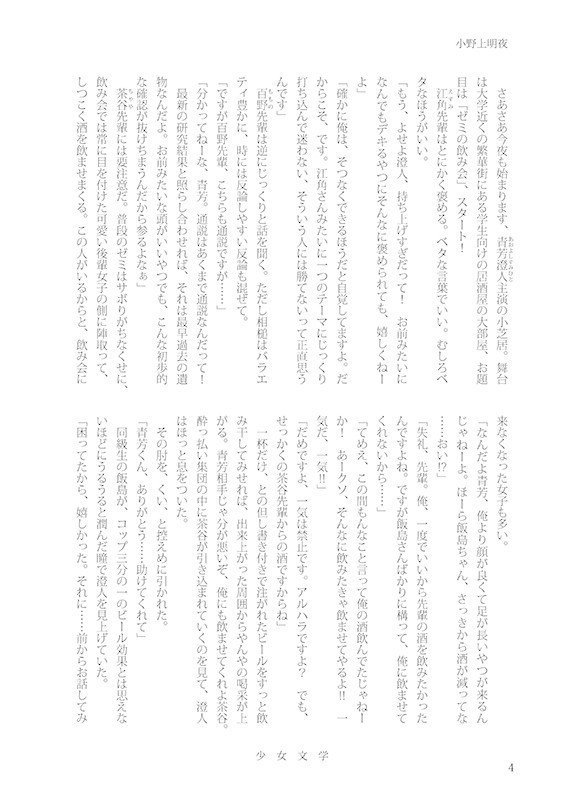 小野上明夜
さあさあ今夜も始まります、青芳澄人主演の小芝居。舞台
は大学近くの繁華街にある学生向けの居酒屋の大部屋、お題
目は「ゼミの飲み会」、スタート！
江角先輩はとにかく褒める。ベタな言葉でいい。むしろベ
タなほうがいい。
「もう、よせよ澄人、持ち上げすぎだって！　お前みたいに
なんでもデキるやつにそんなに褒められても、嬉しくねー
よ」
「確かに俺は、そつなくできるほうだと自覚してますよ。だ
からこそ、です。江角さんみたいに一つのテーマにじっくり
打ち込んで迷わない、そういう人には勝てないって正直思う
んです」
百野先輩は逆にじっくりと話を聞く。ただし相槌はバラエ
ティ豊かに、時には反論しやすい反論も混ぜて。
「ですが百野先輩、こちらも通説ですが……」
「分かってねーな、青芳。通説はあくまで通説なんだって！
最新の研究結果と照らし合わせれば、それは最早過去の遺
物なんだよ。お前みたいな頭がいいやつでも、こんな初歩的
な確認が抜けちまうんだから参るよなぁ」
茶谷先輩には要注意だ。普段のゼミはサボりがちなくせに、
飲み会では常に目を付けた可愛い後輩女子の側に陣取って、
しつこく酒を飲ませまくる。この人がいるからと、飲み会に
来なくなった女子も多い。
「なんだよ青芳、俺より顔が良くて足が長いやつが来るん
じゃねーよ。ほーら飯島ちゃん、さっきから酒が減ってな
……おい!?」
「失礼、先輩。俺、一度でいいから先輩の酒を飲みたかった
んですよね。ですが飯島さんばかりに構って、俺に飲ませて
くれないから……」
「てめえ、この間もんなこと言って俺の酒飲んでたじゃねー
か！　あークソ、そんなに飲みたきゃ飲ませてやるよ!!　一
気だ、一気!!」
「だめですよ、一気は禁止です。アルハラですよ？　でも、
せっかくの茶谷先輩からの酒ですからね」
一杯だけ、との但し書き付きで注がれたビールをすっと飲
み干してみせれば、出来上がった周囲からやんやの喝采が上
がる。青芳相手じゃ分が悪いぞ、俺にも飲ませてくれよ茶谷。
酔っ払い集団の中に茶谷が引き込まれていくのを見て、澄人
はほっと息をついた。
その肘を、くい、と控えめに引かれた。
「青芳くん、ありがとう……助けてくれて」
同級生の飯島が、コップ三分の一のビール効果とは思えな
いほどにうるうると潤んだ瞳で澄人を見上げていた。
「困ってたから、嬉しかった。それに……前からお話してみ
少女文学
4